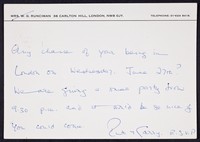 MRS. W. G. RUNCIMAN, 36 CARLTON HILL, LONDON, NW8 0JY. TELEPHONE:
Any chance of your being in
London on Wednesday, June 27th?
We are giving a small party from
6.30 p.m. and it would be so nice if
you could come.
Ruth & Garry R.S.V.P.